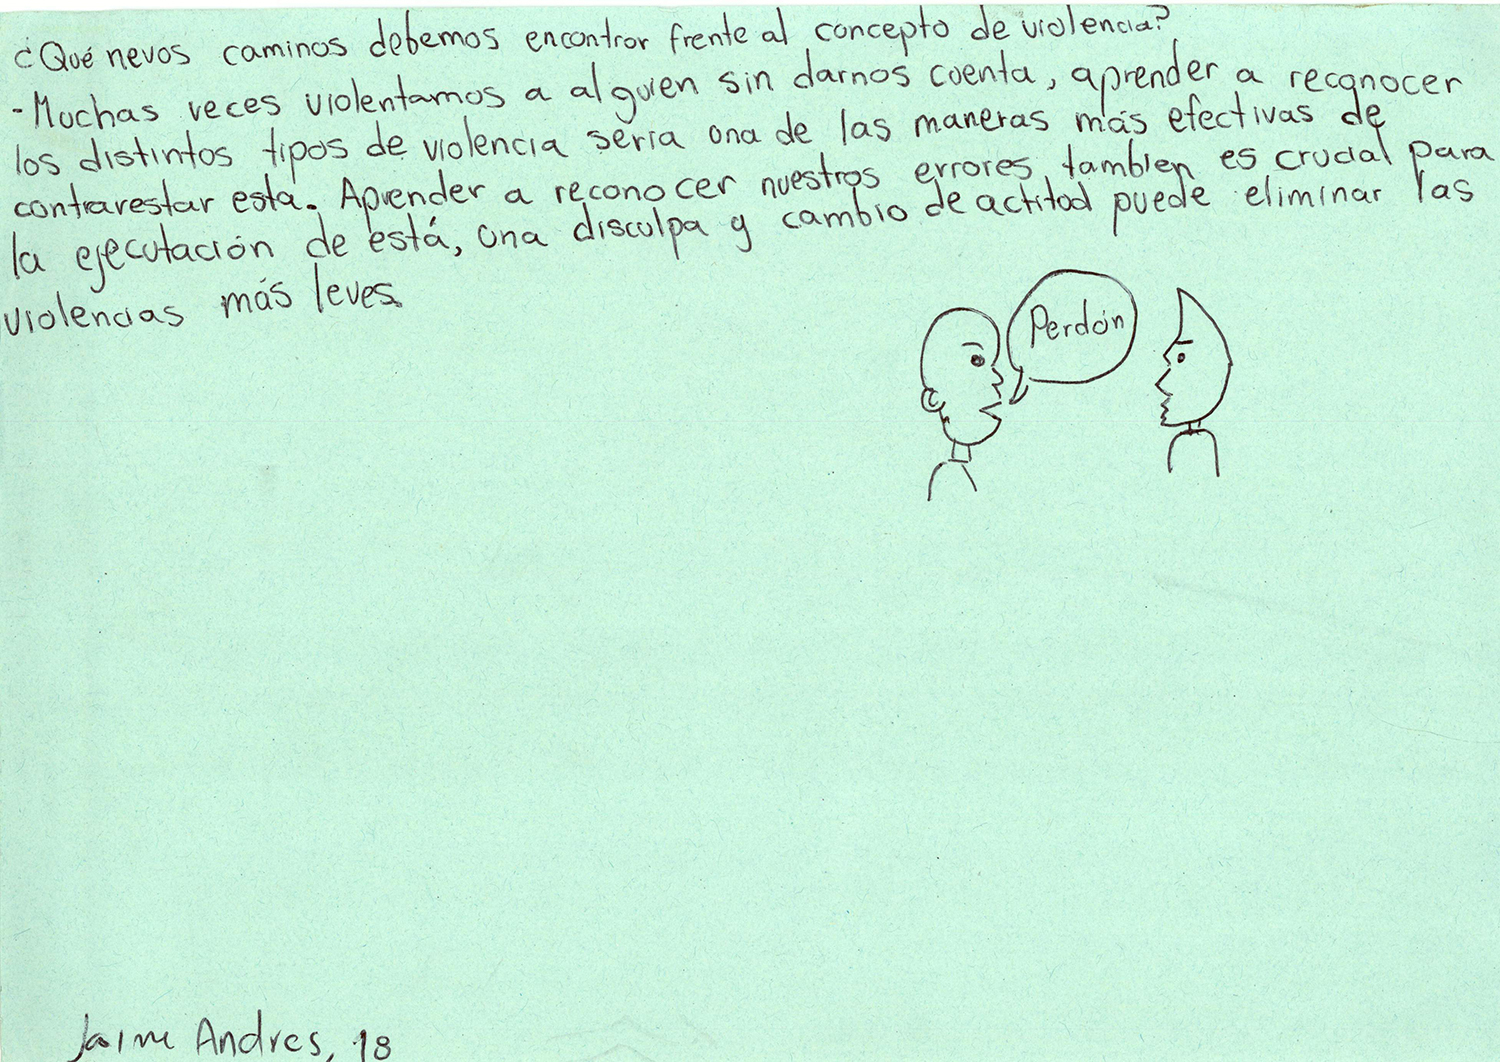 ¿Qué nevos caminos debemos encontrar frente al concepto de violencia?
-Muchas veces violentamos a alguien sin darnos cuenta, aprender a reconocer
los distintos tipos de violencia seria una de las maneras más efectivas de
contrarestar esta. Aprender a reconocer nuestros errores tambien es crucial para
la ejecutación de está, una disculpa y cambio de actitud puede eliminar las
violencias más leves.
Perdón
Jaime Andres, 18